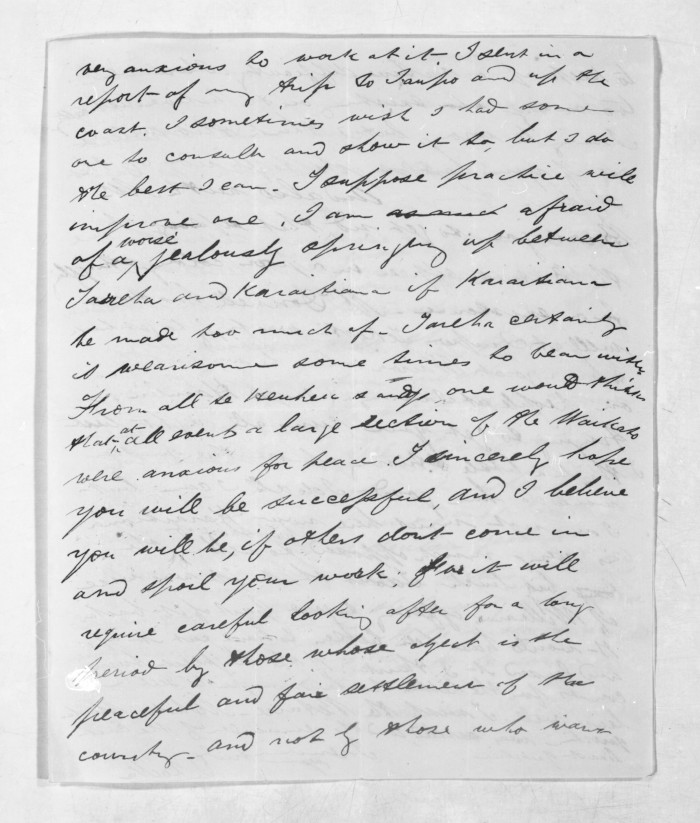 very anxious to work at it I sent in a
report of my trip to Taupo and up the
coast. I sometimes wish I had some
one to consult and show it to, but I do
the best I can. I suppose practice will
improve one. I am as much afraid
of a worse jealously springing up between
Tareha and Karaitiana if Karaitiana
be made too much of. Tareha certainly
is wearisome some times to bear with
From all te Heuheu says, one would think
that at all events a large section of the Waikato
were anxious for peace. I sincerely hope
you will be successful, and I believe
you will be, if others dont come in
and spoil your work, for it will
require careful looking after for a long
period by those whose object is the
peaceful and fair settlement of the
country - and not by those who want